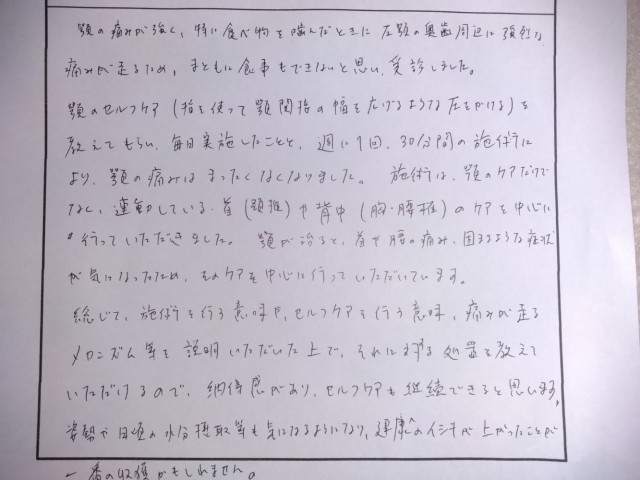 顎の痛みが強く、特に食べ物を噛んだときに左顎の奥歯周辺に強烈な
痛みが走るため、まともに食事もできないと思い、受診しました。
顎のセルフケア（指を使って顎関節の幅を広げるような圧をかける）を
教えてもらい、毎日実施したことと、週に1回、30分間の施術に
より、顎の痛みはまったくなくなりました。 施術は、顎のケアだけで
なく、連動している首（頚椎）や背中（胸・腰椎）のケアを中心に
行っていただきました。 顎が治ると、首や腰の痛み、困るような症状
が気になったため、そのケアを中心に行っていただいています。
総じて、施術を行う意味や、セルフケアを行う意味、痛みが走る
メカニズム等を説明いただいた上で、それに対する処置を教えて
いただけるので、納得感があり、セルフケアも継続できると思います。
姿勢や日頃の水分摂取等も気になるようになり、健康への意識が上がったことが
一番の収穫かもしれません。